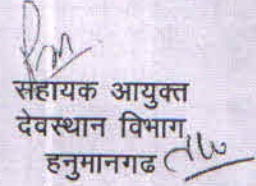 सहायक आयुक्त
देवस्थान विभाग
हनुमानगढ